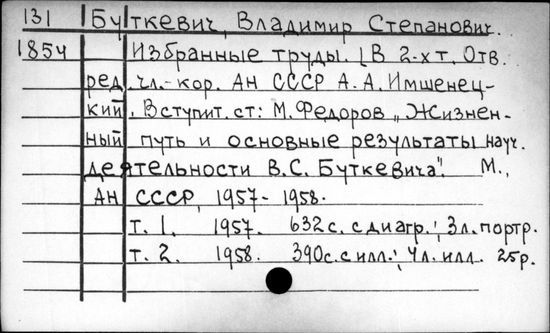 131 Буткевич, Владимир Степанович.
1854 Избранные труды. [В 2-х т. Отв.
ред. чл.-кор. АН СССР А.А. Имшенец-
кий. Вступит. ст: М. Федоров „Жизнен-
ный путь и основные результаты науч.
деятельности В.С. Буткевича". М.,
АН СССР, 1957-1958.
т. 1. 1957. 632с. с диагр.; 3л. портр.
т. 2. 1958. 390с. с илл.; 4л. илл. 25р.